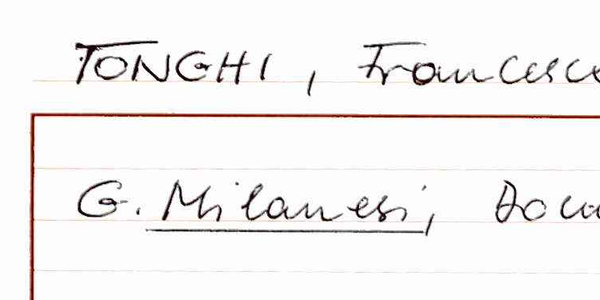 TONGHI, Francesco
G. Milanesi,